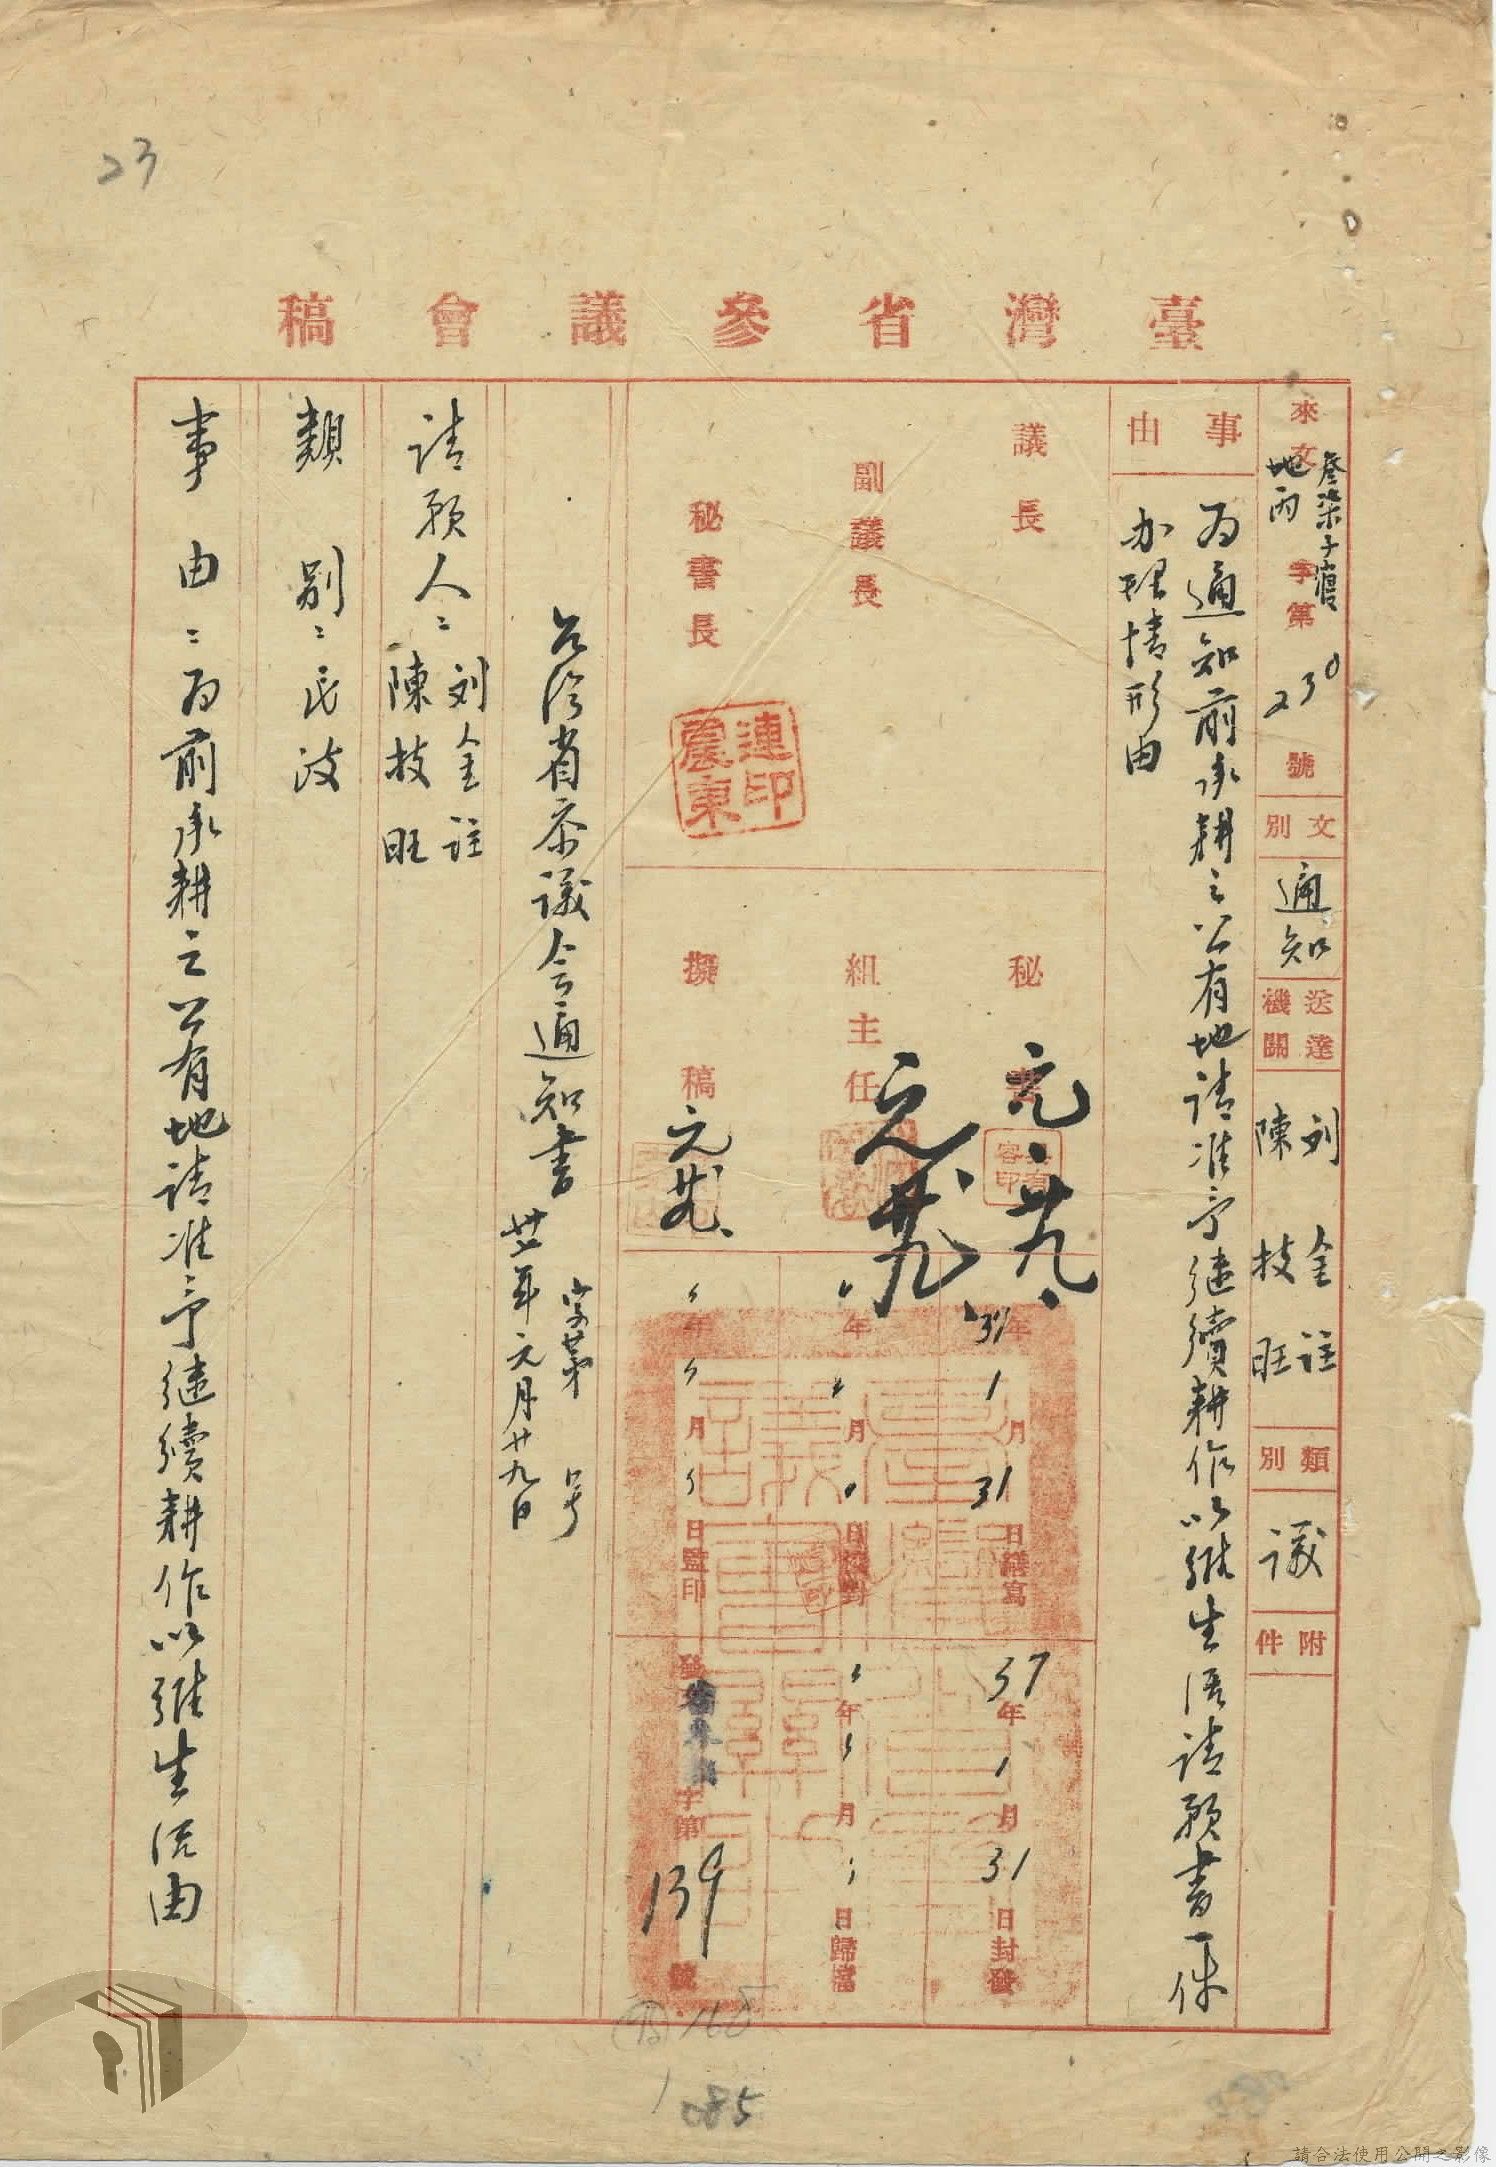 23
臺灣省參議會稿
來文 參柒子
地丙 字第230號
文別 通知
送達機關 刘金註 陳枝旺
類別 議
附件
事由
为通知前承耕之公有地請准予继續耕作以維生活請願書一件
办理情形由
議長
副議長
秘書長
連震東印
秘書 元.卄九.
組主任 元卄九、
擬稿 元卄九、
37年1月31日繕寫
年月日校對
年月日監印
37年1月31日封發
年月日歸檔
發文 字第139號
台湾省参议会通知書
字第 号
卅七年元月廿九日
請願人：刘金註
陳枝旺
類別：民政
事由：为前承耕之公有地請准予继續耕作以維生活由
165
1
085
請合法使用公開之影像